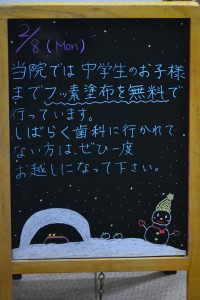 2/8 (Mon)
当院では中学生のお子様
までフッ素塗布を無料で
行っています。
しばらく歯科に行かれて
ない方は、ぜひ一度
お越しになって下さい。